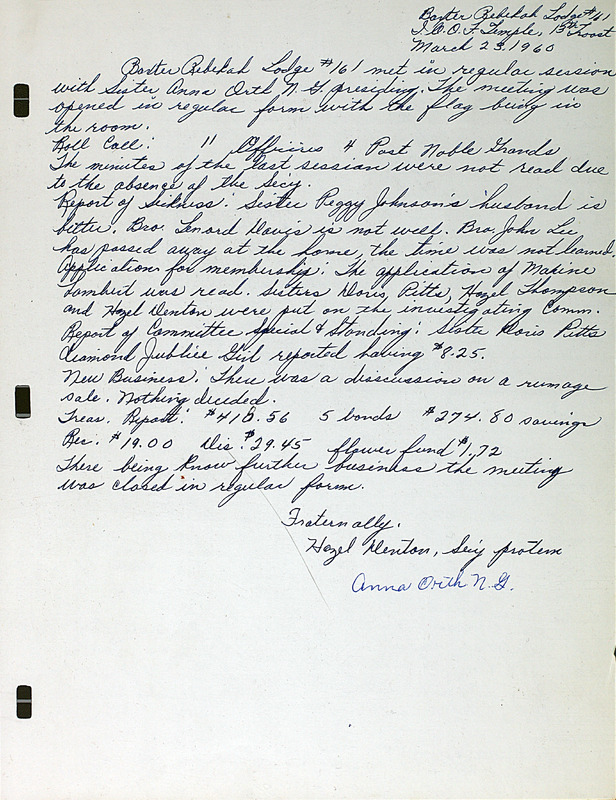 Baxter Rebekah Lodge #161
I.O.O.F. Temple, 15th Troost
March 23, 1960
Baxter Rebekah Lodge #161 met in regular session
with Sister Anna Orth N.G. presiding. The meeting was
opened in regular form with the flag being in
the room.
Roll Call: 11 Officires 4 Past Noble Grands
The minutes of the last session were not read due
to the absence of the Sec'y.
Report of Sickness: Sister Peggy Johnson's husband is
better. Bro. Lenord Davis is not well. Bro. John Lee
has passed away at the home, the time was not learned.
Application for membership: The application of Maxine
Lambert was read. Sisters Doris, Pitts, Hazel Thompson
and Hazel Denton were put on the investigating Comm.
Report of Committee Special & Standing: Sister Doris Pitts
Diamond Jubilee Girl reported having $8.25.
New Business: There was a disscussion on a rumage
sale. Nothing decided.
Treas. Report: $413.56 5 bonds $274.80 savings
Rec. $19.00 Dis. $29.45 flower fund $1.72
There being know further business the meeting
was closed in regular form.
Fraternally.
Hazel Denton, Sec'y protem
Anna Orth N.G.